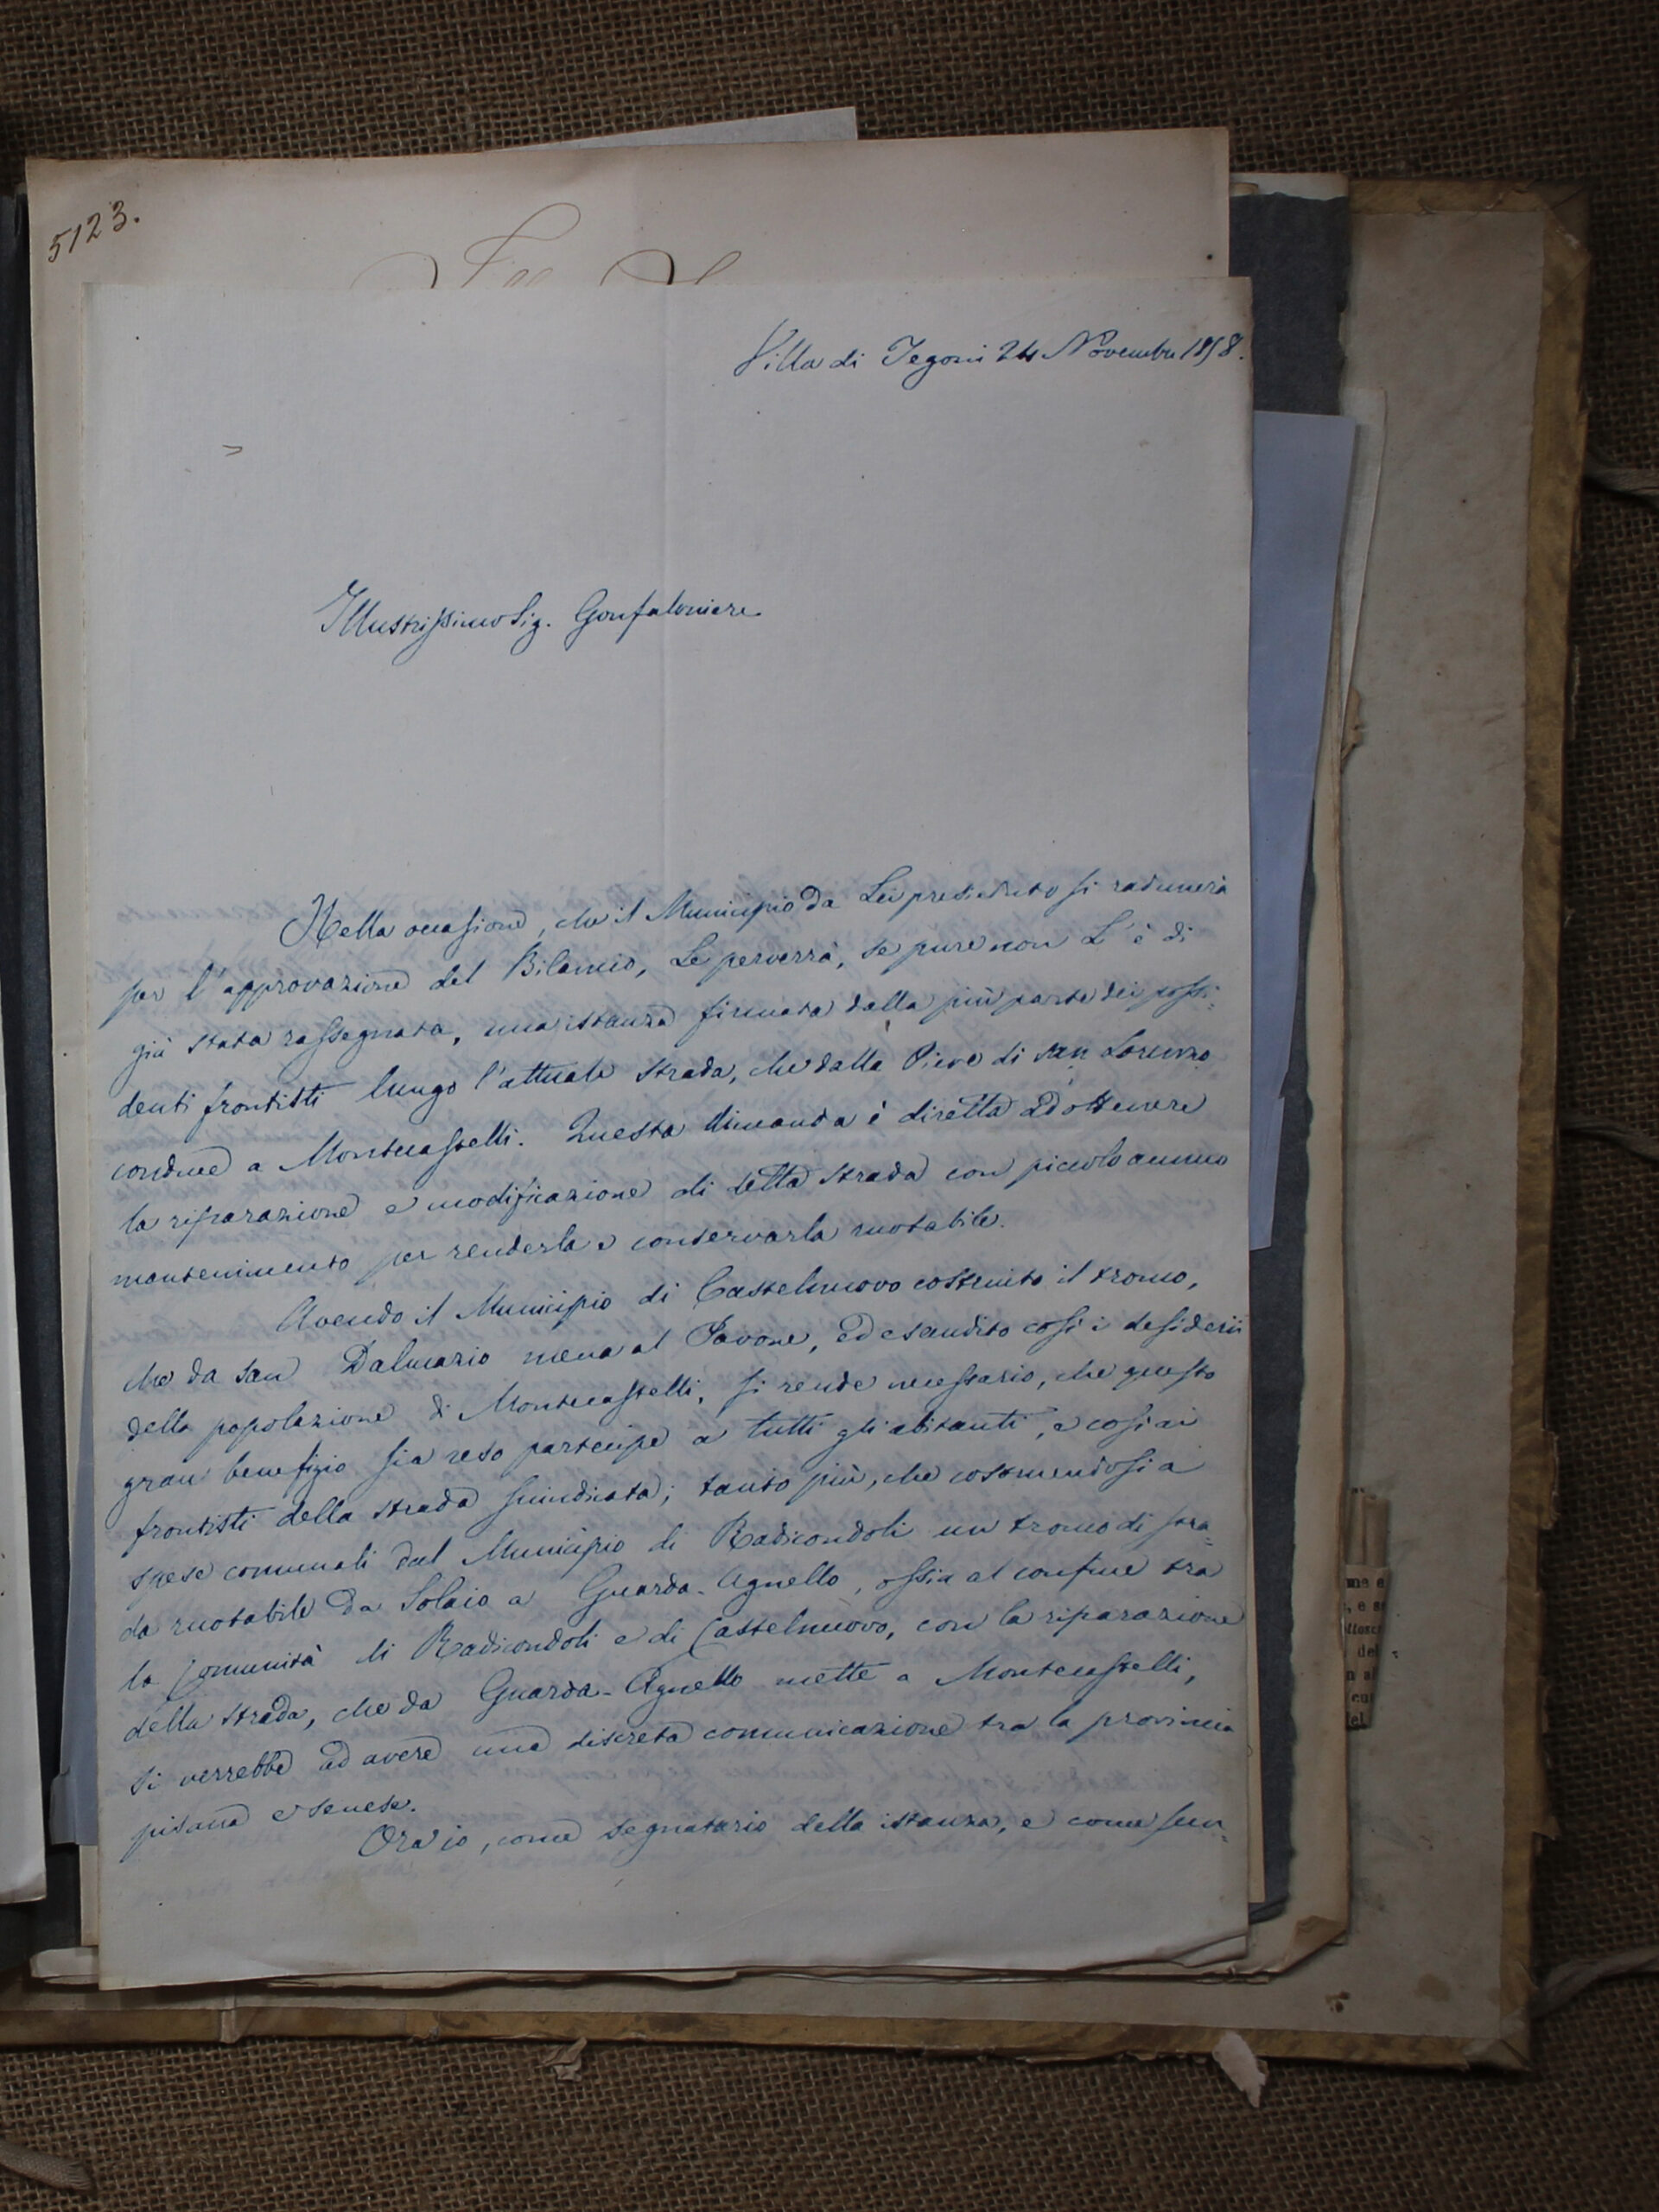 5123.
Villa di Tegoni 24 Novembre 1858.
Illustrissimo Sig. Gonfaloniere
Nella occasione, che il Municipio da Lei presieduto si radunerà
per l'approvazione del Bilancio, Le perverrà, se pure non L'è di
già stata rassegnata, una istanza firmata dalla più parte dei possi-
denti frontisti lungo l'attuale strada, che dalla Pieve di san Lorenzo
conduce a Montecastelli. Questa dimanda è diretta ad ottenere
la riparazione e modificazione di detta strada con piccolo annuo
mantenimento per renderla e conservarla ruotabile.
Avendo il Municipio di Castelnuovo costruito il tronco,
che da san Dalmazio mena al Pavone, ed esaudito così i desiderii
della popolazione di Montecastelli, si rende necessario, che questo
gran benefizio sia reso partecipe a tutti gli abitanti, e così ai
frontisti della strada suindicata; tanto più, che costruendosi a
spese comunali dal Municipio di Radicondoli un tronco di stra-
da ruotabile da Solaio a Guarda-Agnello, ossia al confine tra
la Comunità di Radicondoli e di Castelnuovo, con la riparazione
della strada, che da Guarda-Agnello mette a Montecastelli,
si verrebbe ad avere una discreta comunicazione tra la provincia
pisana e senese.
Ora io, come segnatario della istanza, e come sun-